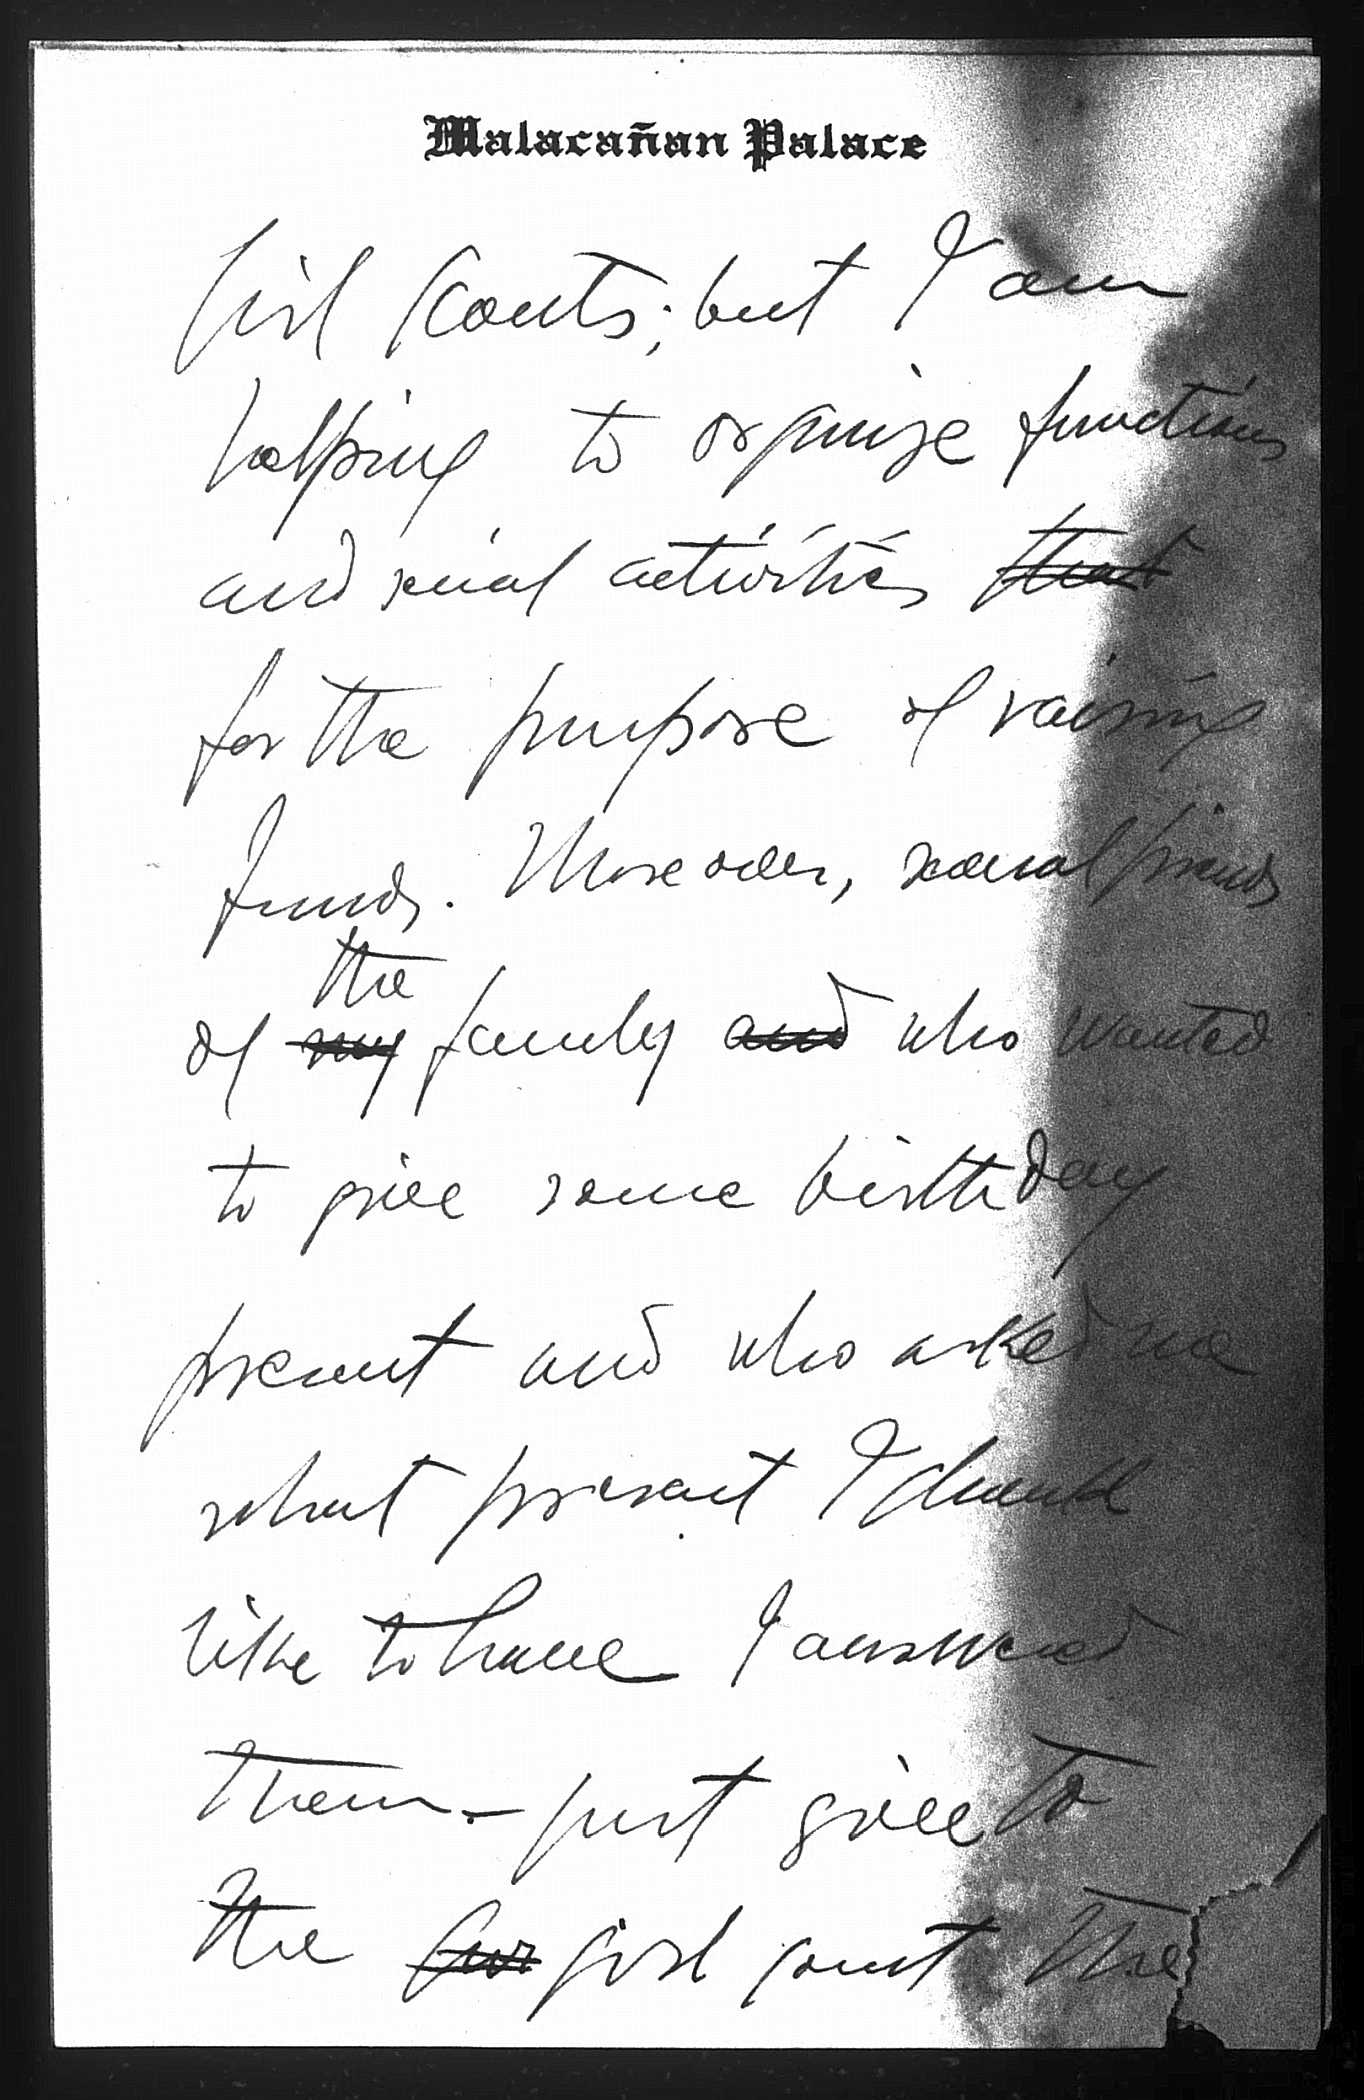 Malacañan Palace
Girl Scouts; but I am
helping to organize functions
and social activities that
for the purpose of raising
funds. Moreover, several friends
the
of my family and who wanted
to give some birthday
present and who asked me
what present I should
like to have I answered
them - just give to
the girl scout the